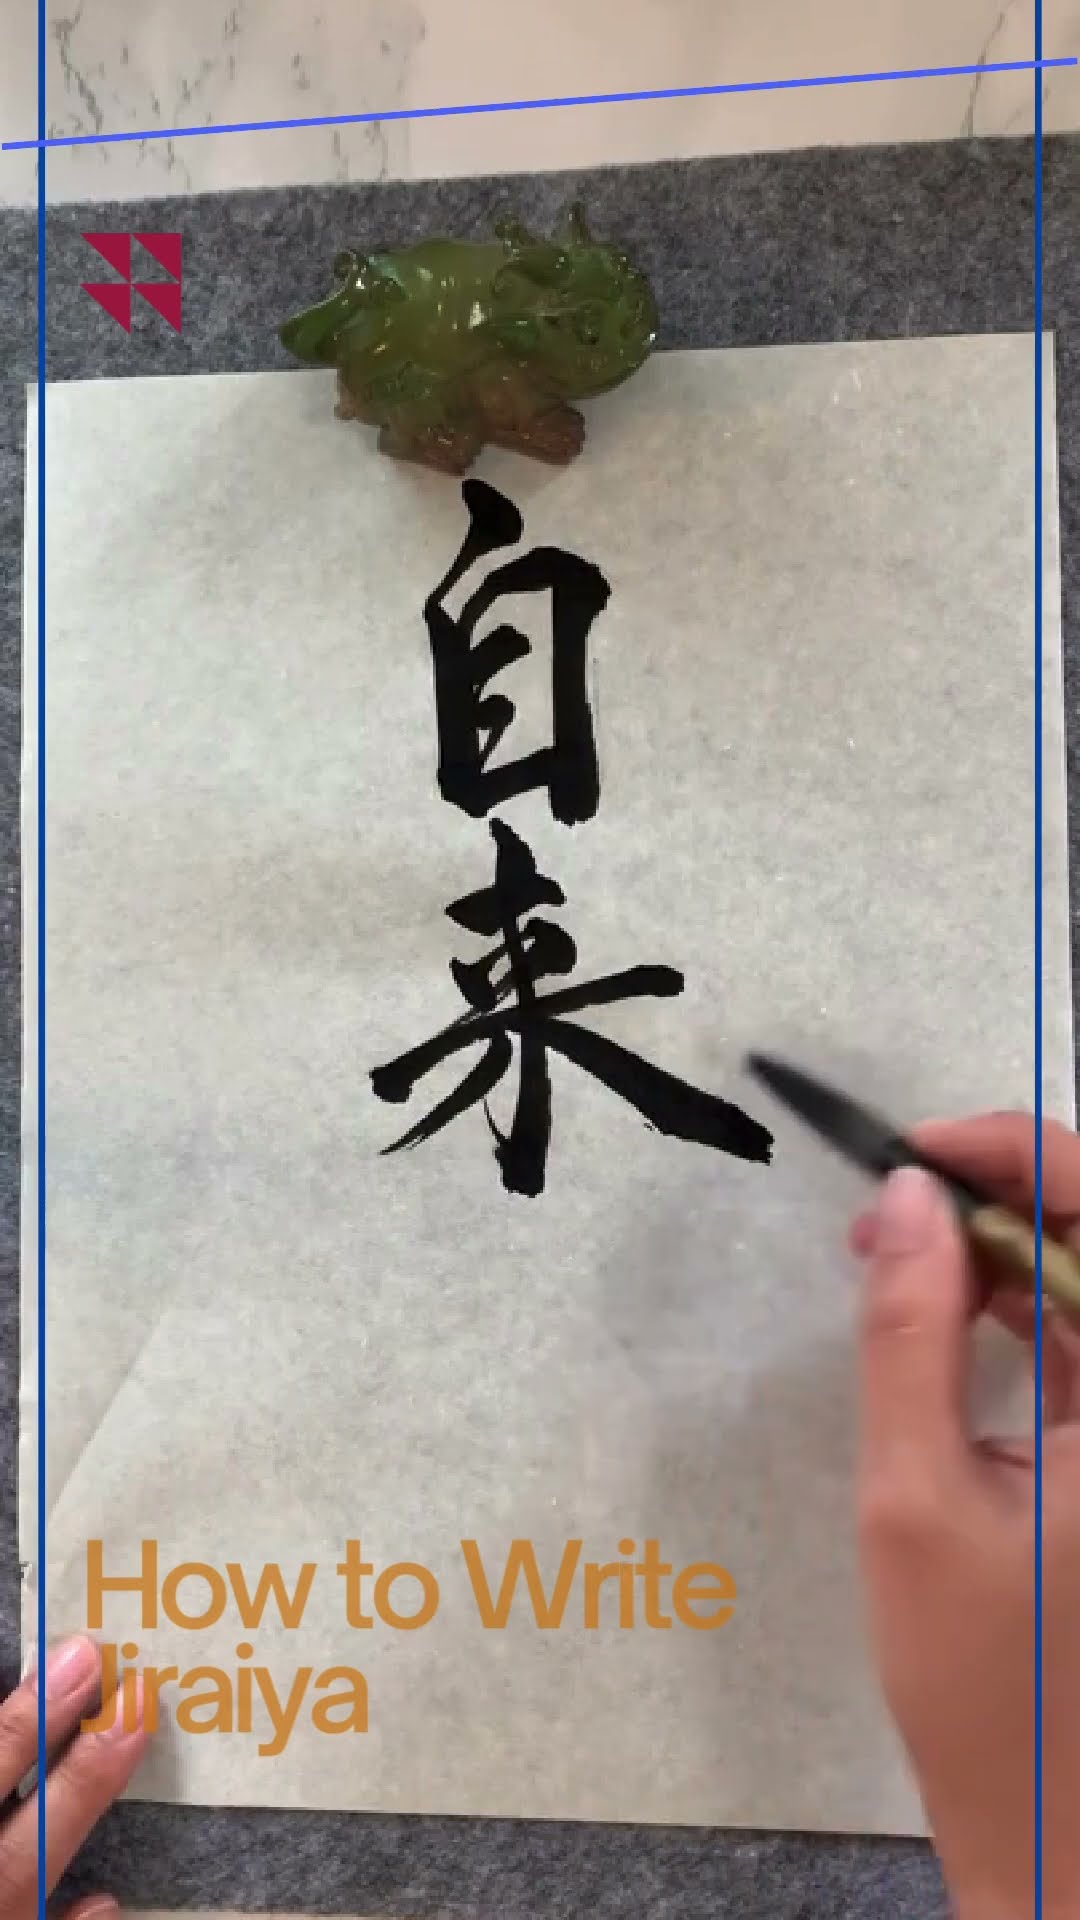 自
来
How to Write
Jiraiya